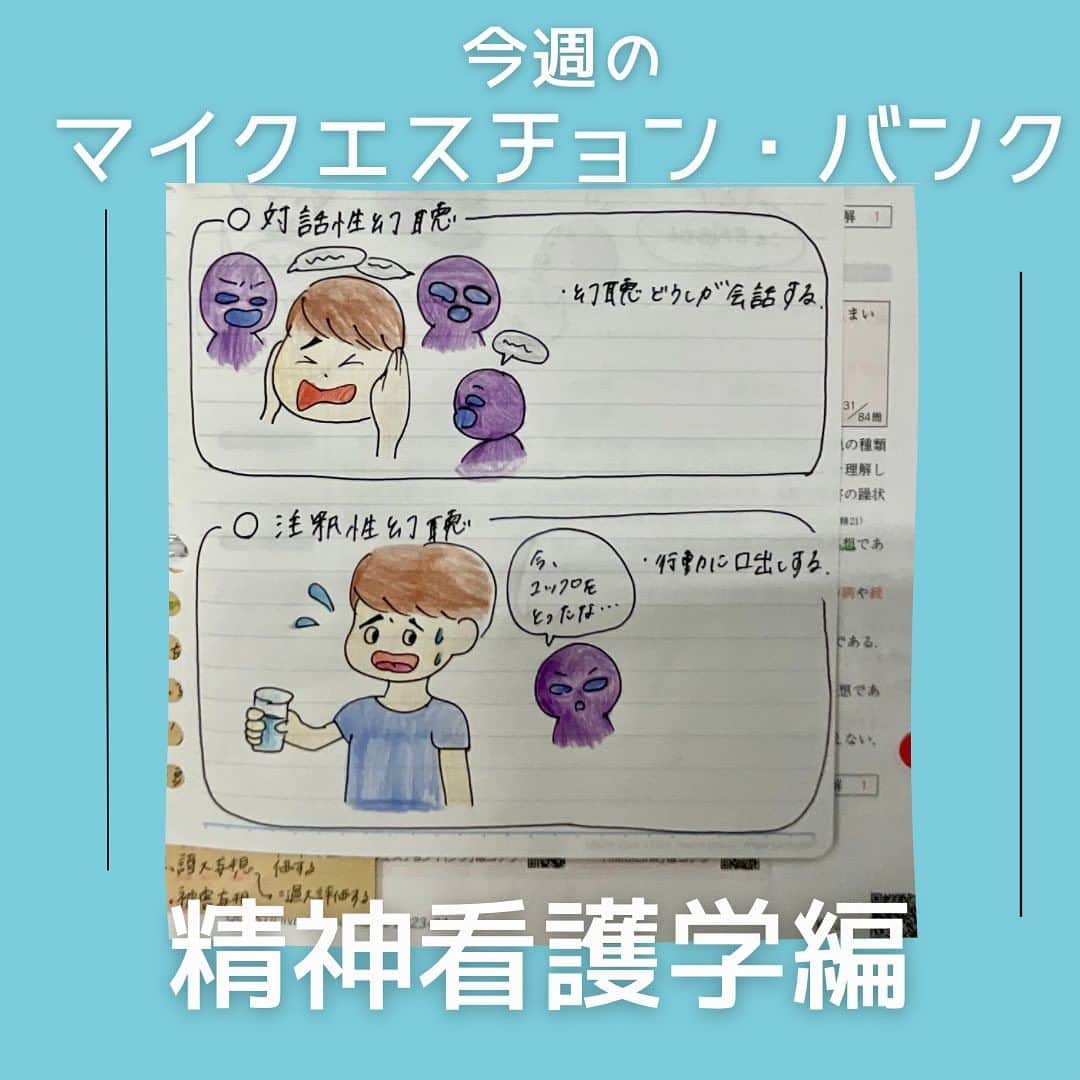 今週の
マイクエスチョン・バンク
○ 対話性幻聴
・幻聴どうしが会話する.
○ 注釈性幻聴
今、
コップを
とったな…
・行動に口出しする.
解 1
まい
31/84問
の種類
理解し
の躁状
想であ
病や
である.
想であ
えない.
解 1
・誇大妄想
価する
過大評価する
精神看護学編